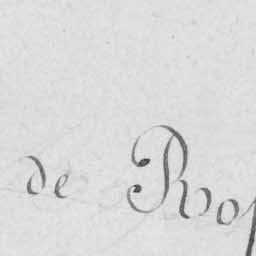 de Ros